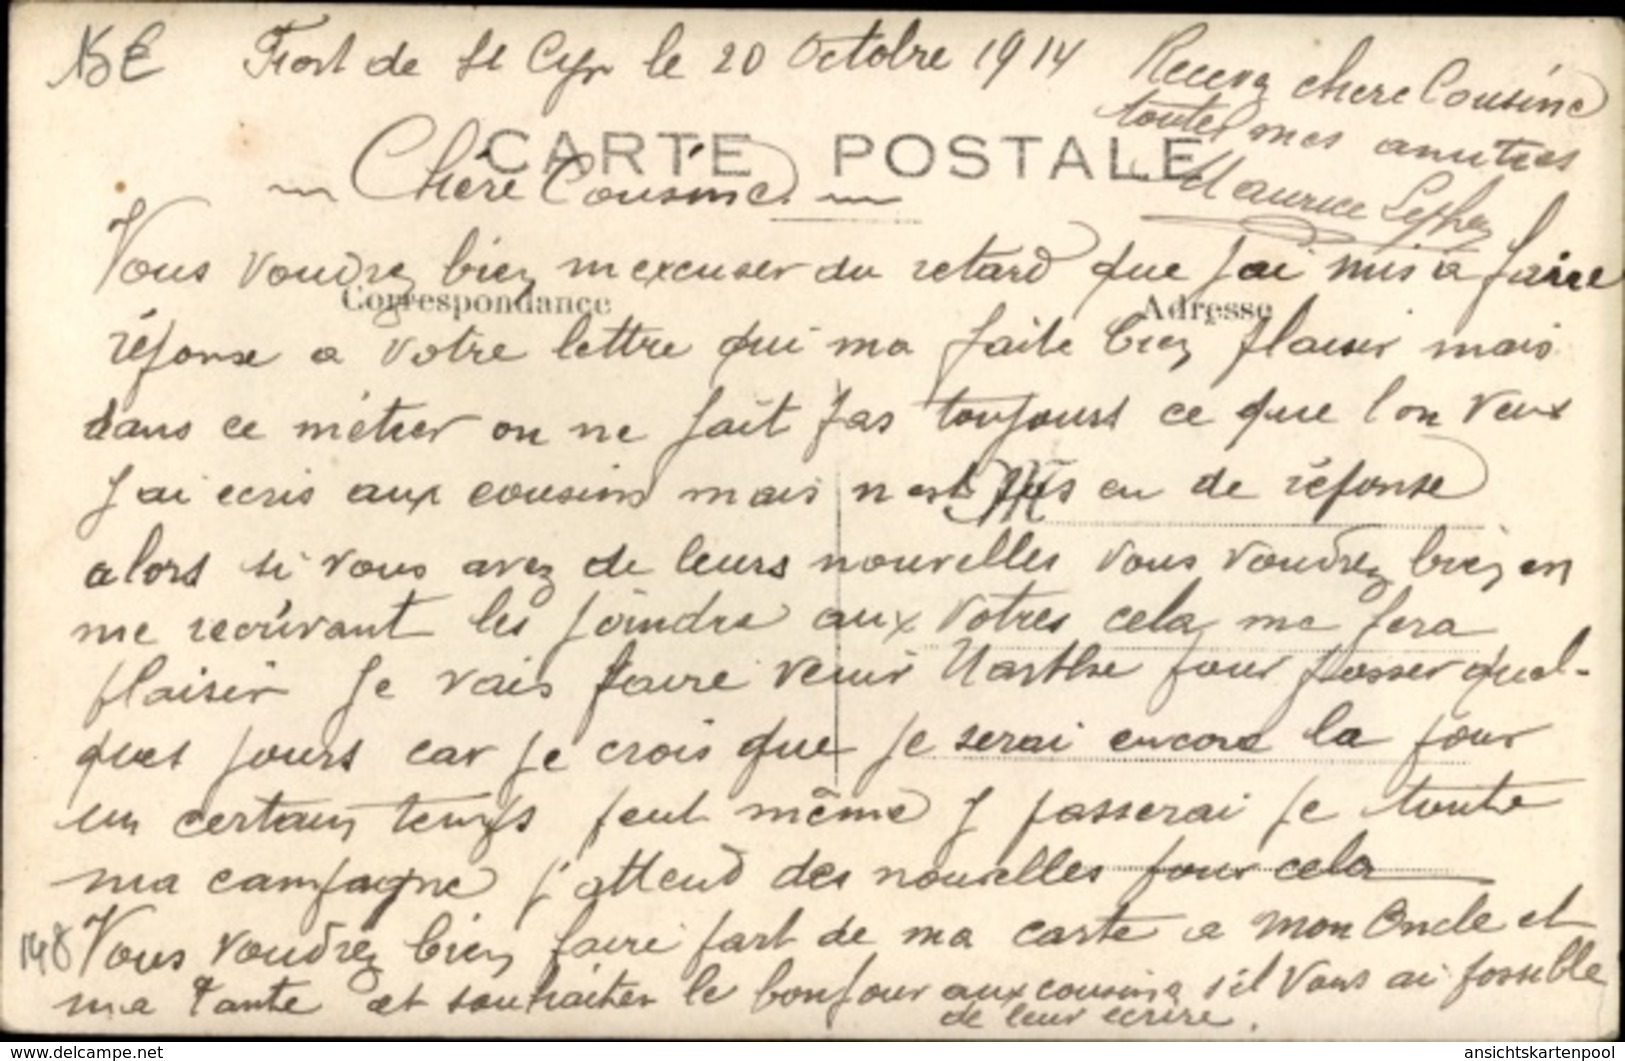 Fort de St Cyr le 20 Octobre 1914
CARTE POSTALE
Chère Cousine
Vous voudrez bien mexcuser du retard que j'ai mis a faire
Correspondance
Adresse
réponse a votre lettre qui ma faite bien plaisir mais
dans ce métier on ne fait pas toujours ce que lon veux
J ai ecris aux cousins mais n est pas eu de réponse
alors si vous avez de leurs nouvelles vous voudrez bien en
me recrivant les joindre aux votres cela me fera
plaisir je vais faire venir Marthe pour passer quel-
ques jours car je crois que je serai encore la pour
un certain temps peut même y passerai je toute
ma campagne j'attend des nouvelles pour cela
148
Vous voudrez bien faire part de ma carte a mon Oncle et
ma Tante et souhaiter le bonjour aux cousins s'il vous ai possible
de leur écrire.
Recevez chere Cousine
toutes mes amities
Maurice
ansichtskartenpool.de
ansichtskartenpool